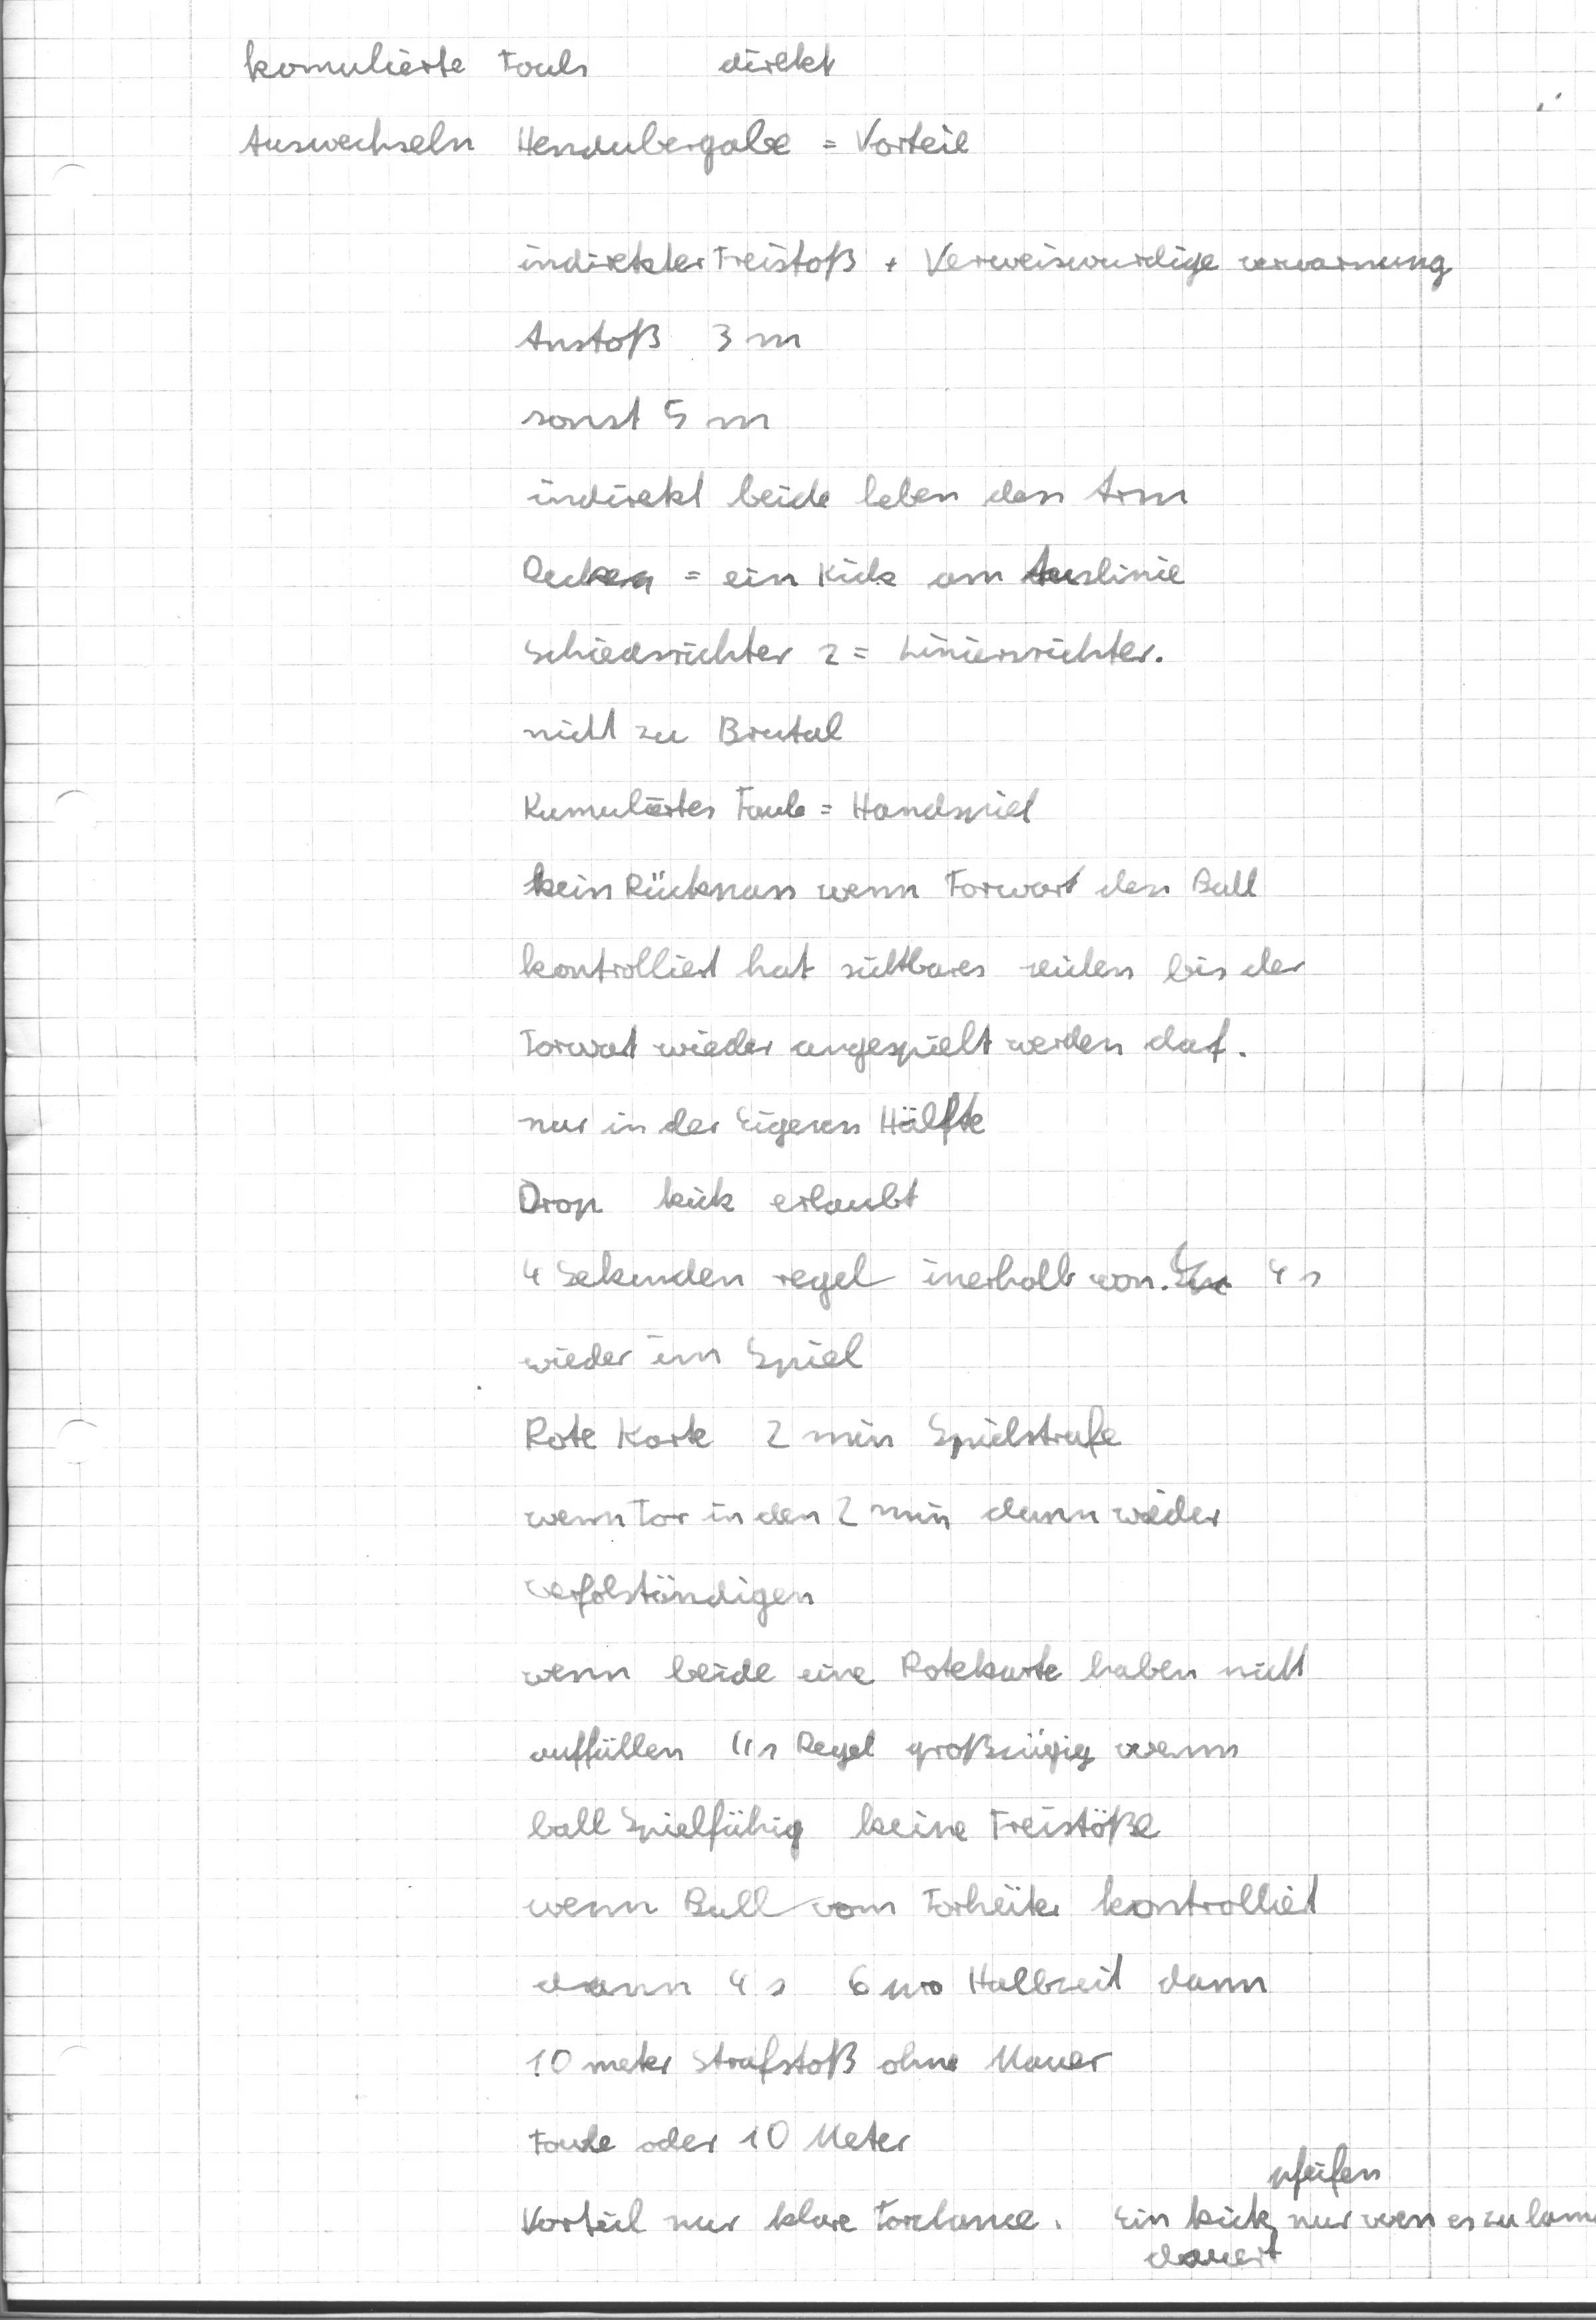 komulierte Fouls direkt
Auswechseln Hendubergabe = Vorteil
indirekter Freistoß + Verweiswurdige verwarnung
Anstoß 3 m
sonst 5 m
indirekt beide heben den Arm
= ein Kick am Auslinie
Schiedsrichter 2 = Linienrichter.
nicht zu Brutal
Kumuliertes Foule = Handspiel
kein Rückpass wenn Torwart den Ball
kontrolliert hat bis der
Torwat wieder angespielt werden daf.
nur in der Eigenen Hälfte
Drop kick erlaubt
4 Sekunden regel inerhalb von 4 s
wieder im Spiel
Rote Karte 2 min Spielstrafe
wenn Tor in den 2 min dann wieder
verfolständigen
wenn beide eine Rotekarte haben nicht
auffüllen 4 s Regel großzügig wenn
ball Spielfähig keine Freistöße
wenn Ball vom Torhüter kontrolliert
dann 4 s 6 pro Halbzeit dann
10 meter Strafstoß ohne Mauer
Foule oder 10 Meter
pfeifen
Vorteil nur klare Torchance. Ein kick nur wen es zu lang
dauert